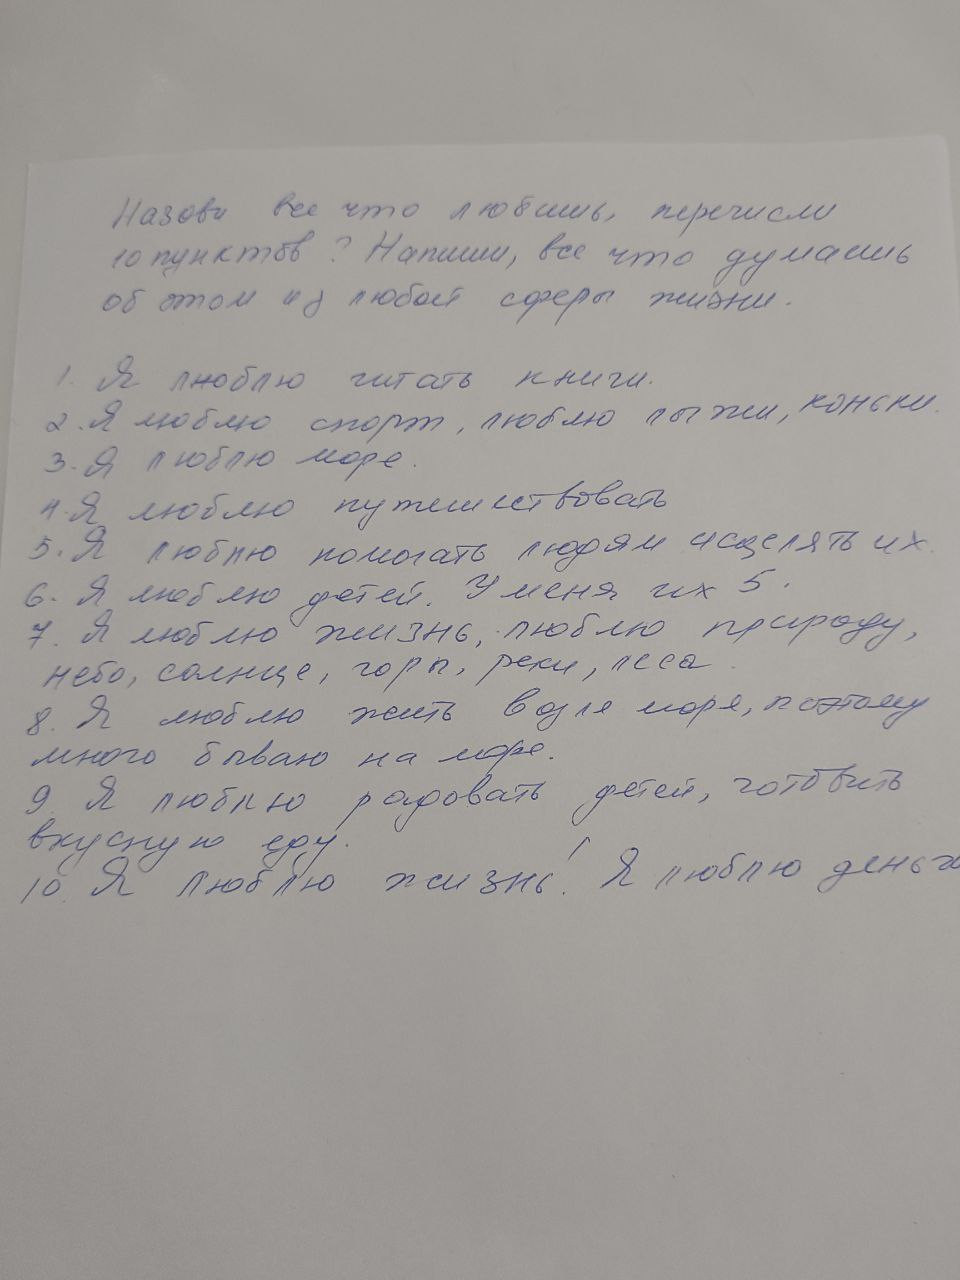 Назови все что любишь, перечисли
10 пунктов? Напиши, все что думаешь
об этом из любой сферы жизни.
1. Я люблю читать книги.
2. Я люблю спорт, люблю лыжи, коньки.
3. Я люблю море.
4. Я люблю путешествовать
5. Я люблю помогать людям исцелять их.
6. Я люблю детей. У меня их 5.
7. Я люблю жизнь, люблю природу,
небо, солнце, горы, реки, леса.
8. Я люблю жить возле моря, поэтому
много бываю на море.
9. Я люблю радовать детей, готовить
вкусную еду.
10. Я люблю жизнь! Я люблю